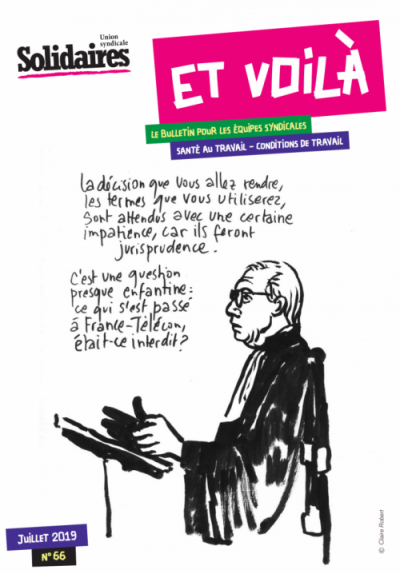 Union
syndicale
Solidaires
ET VOILÀ
LE BULLETIN POUR LES ÉQUIPES SYNDICALES
SANTÉ AU TRAVAIL - CONDITIONS DE TRAVAIL
La décision que vous allez rendre,
les termes que vous utiliserez,
sont attendus avec une certaine
impatience, car ils feront
jurisprudence.
C'est une question
presque enfantine :
ce qui s'est passé
à France-Télécom,
était-ce interdit ?
JUILLET 2019
N°66
© Claire Robert